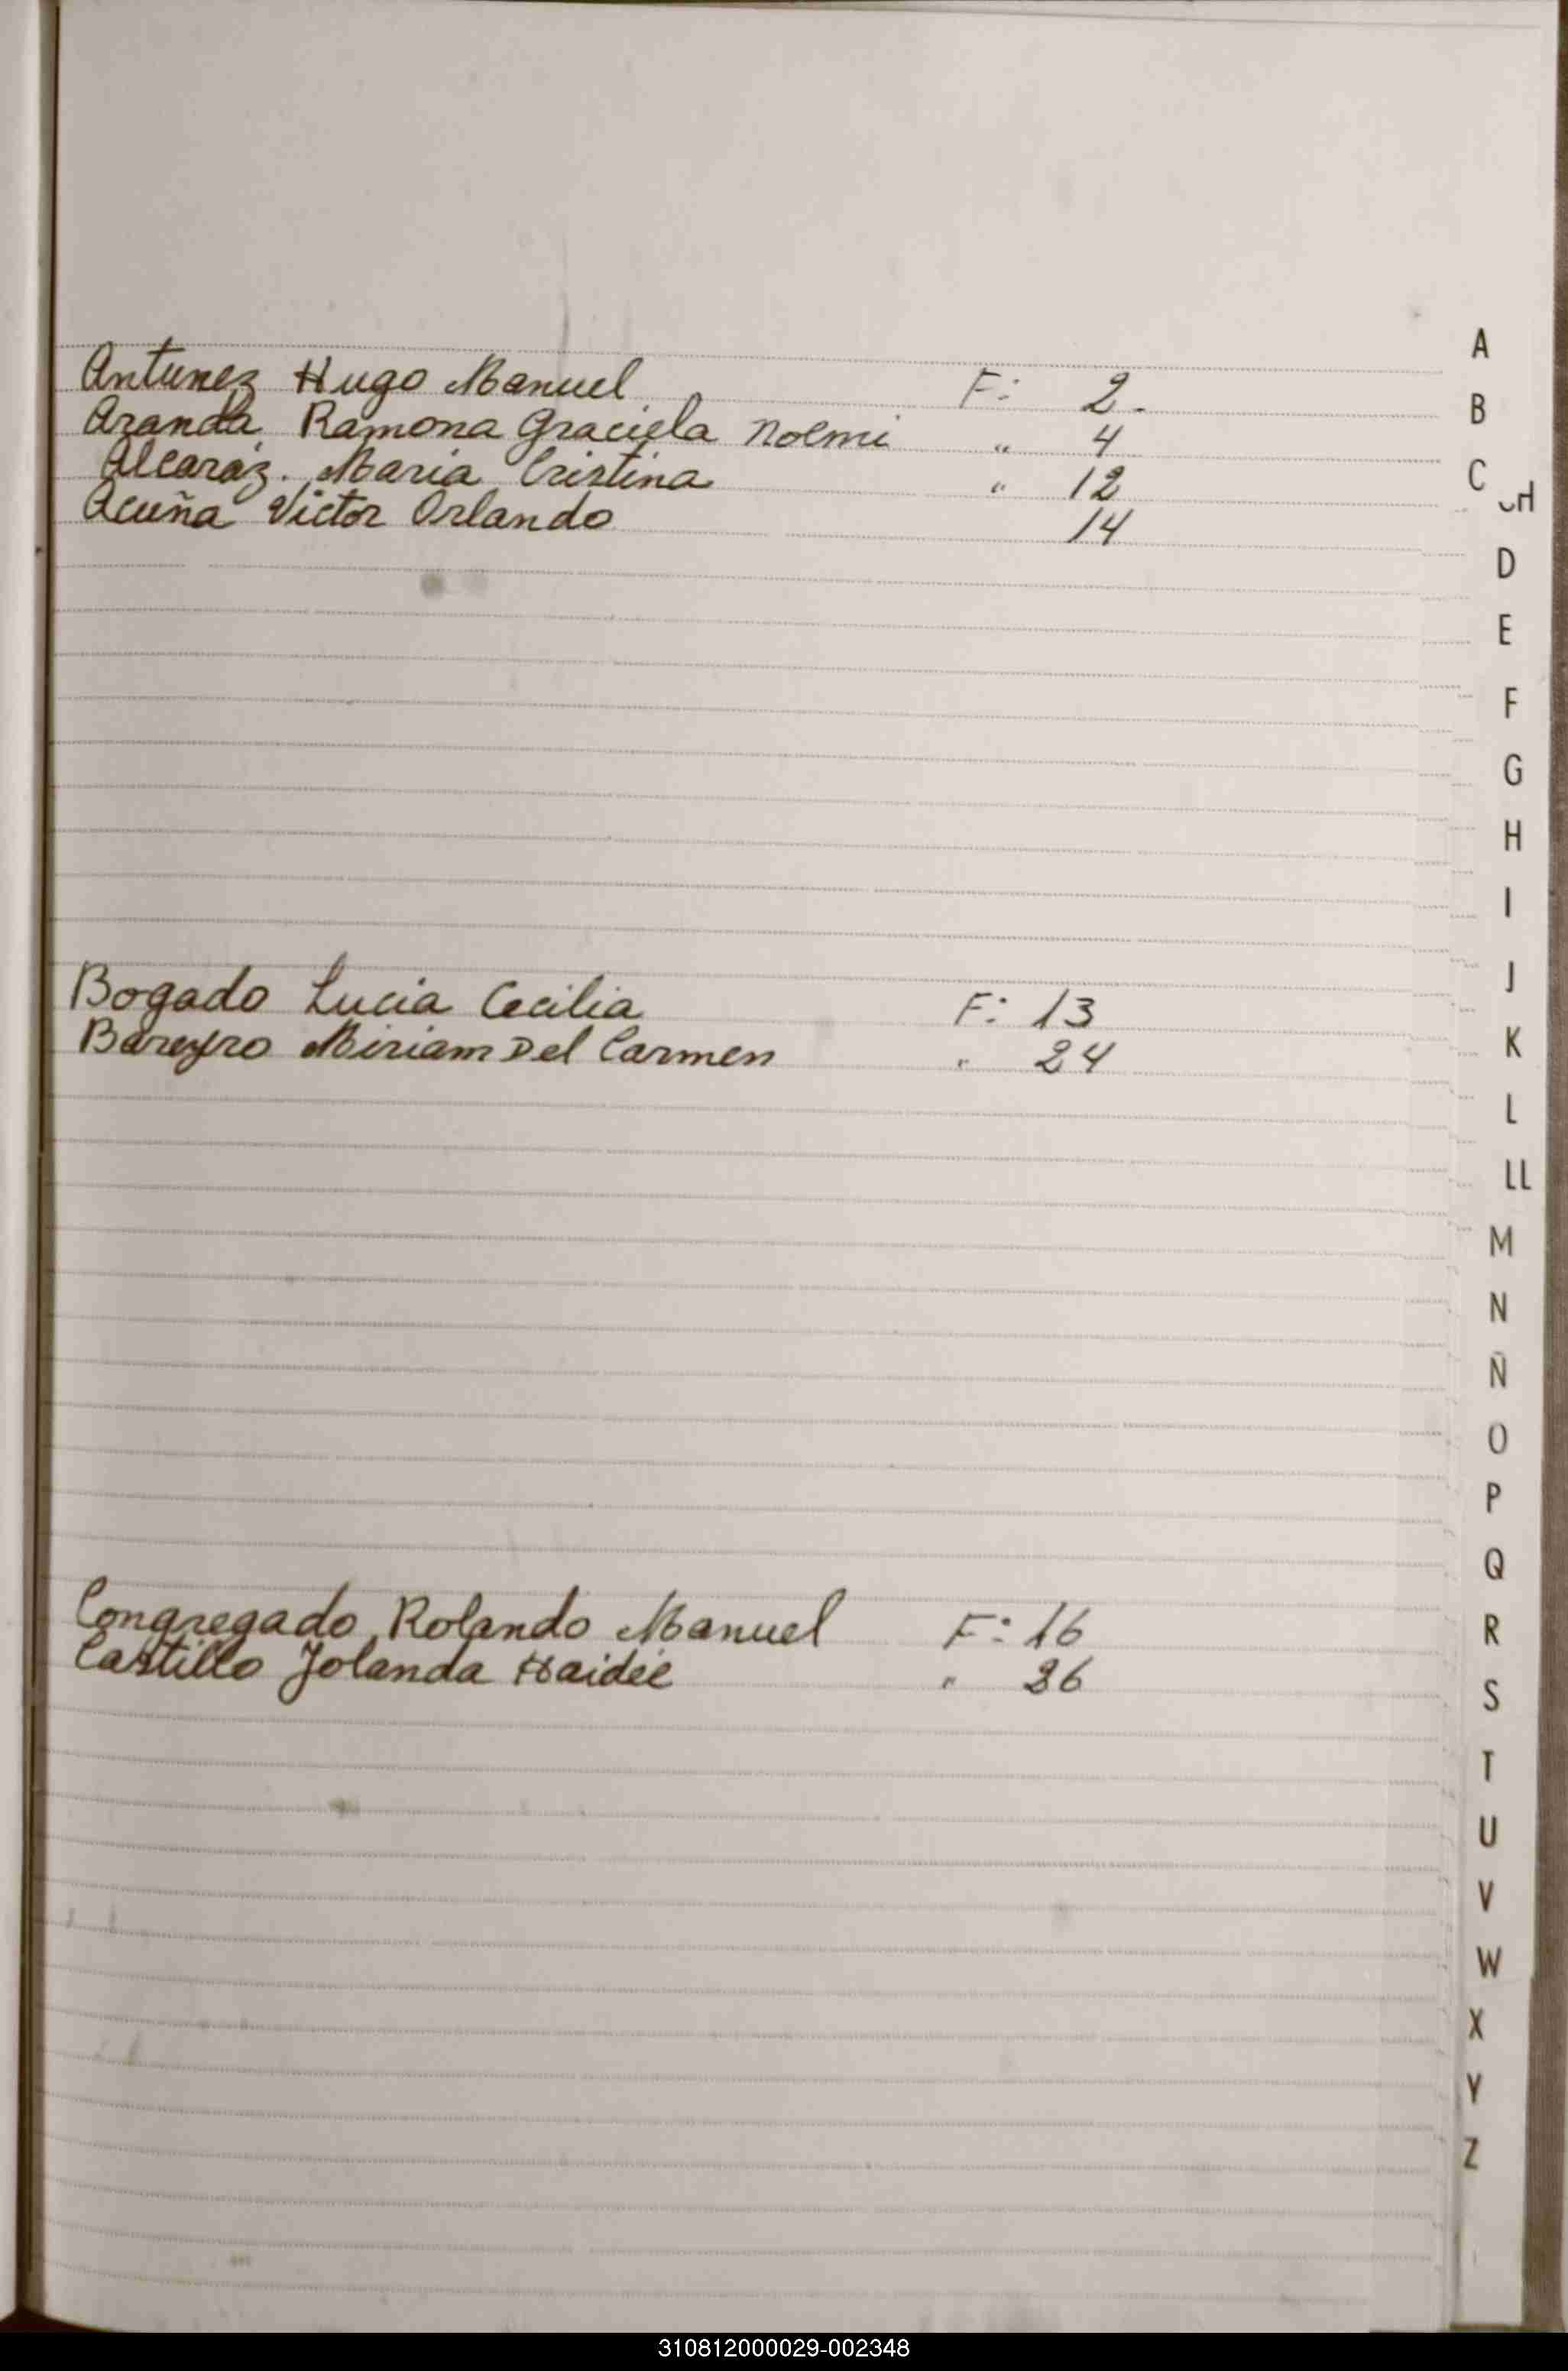 Antunez Hugo Manuel F: 2.
Aranda Ramona Graciela Noemi " 4
Alcaraz. Maria Cristina " 12
Acuña Victor Orlando 14
Bogado Lucia Cecilia F: 13
Bareyro Miriam Del Carmen " 24
Congregado Rolando Manuel F: 16
Castillo Jolanda Haideé " 36
A
B
C CH
D
E
F
G
H
I
J
K
L
LL
M
N
Ñ
O
P
Q
R
S
T
U
V
W
X
Y
Z
310812000029-002348